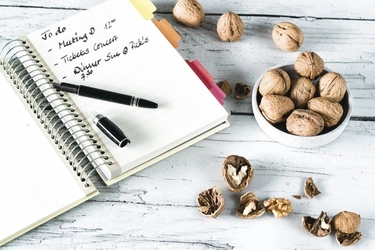 To do
- Meeting D 12:00
- Tickets Concert
- Dinner Sue @ Rick's
7:30